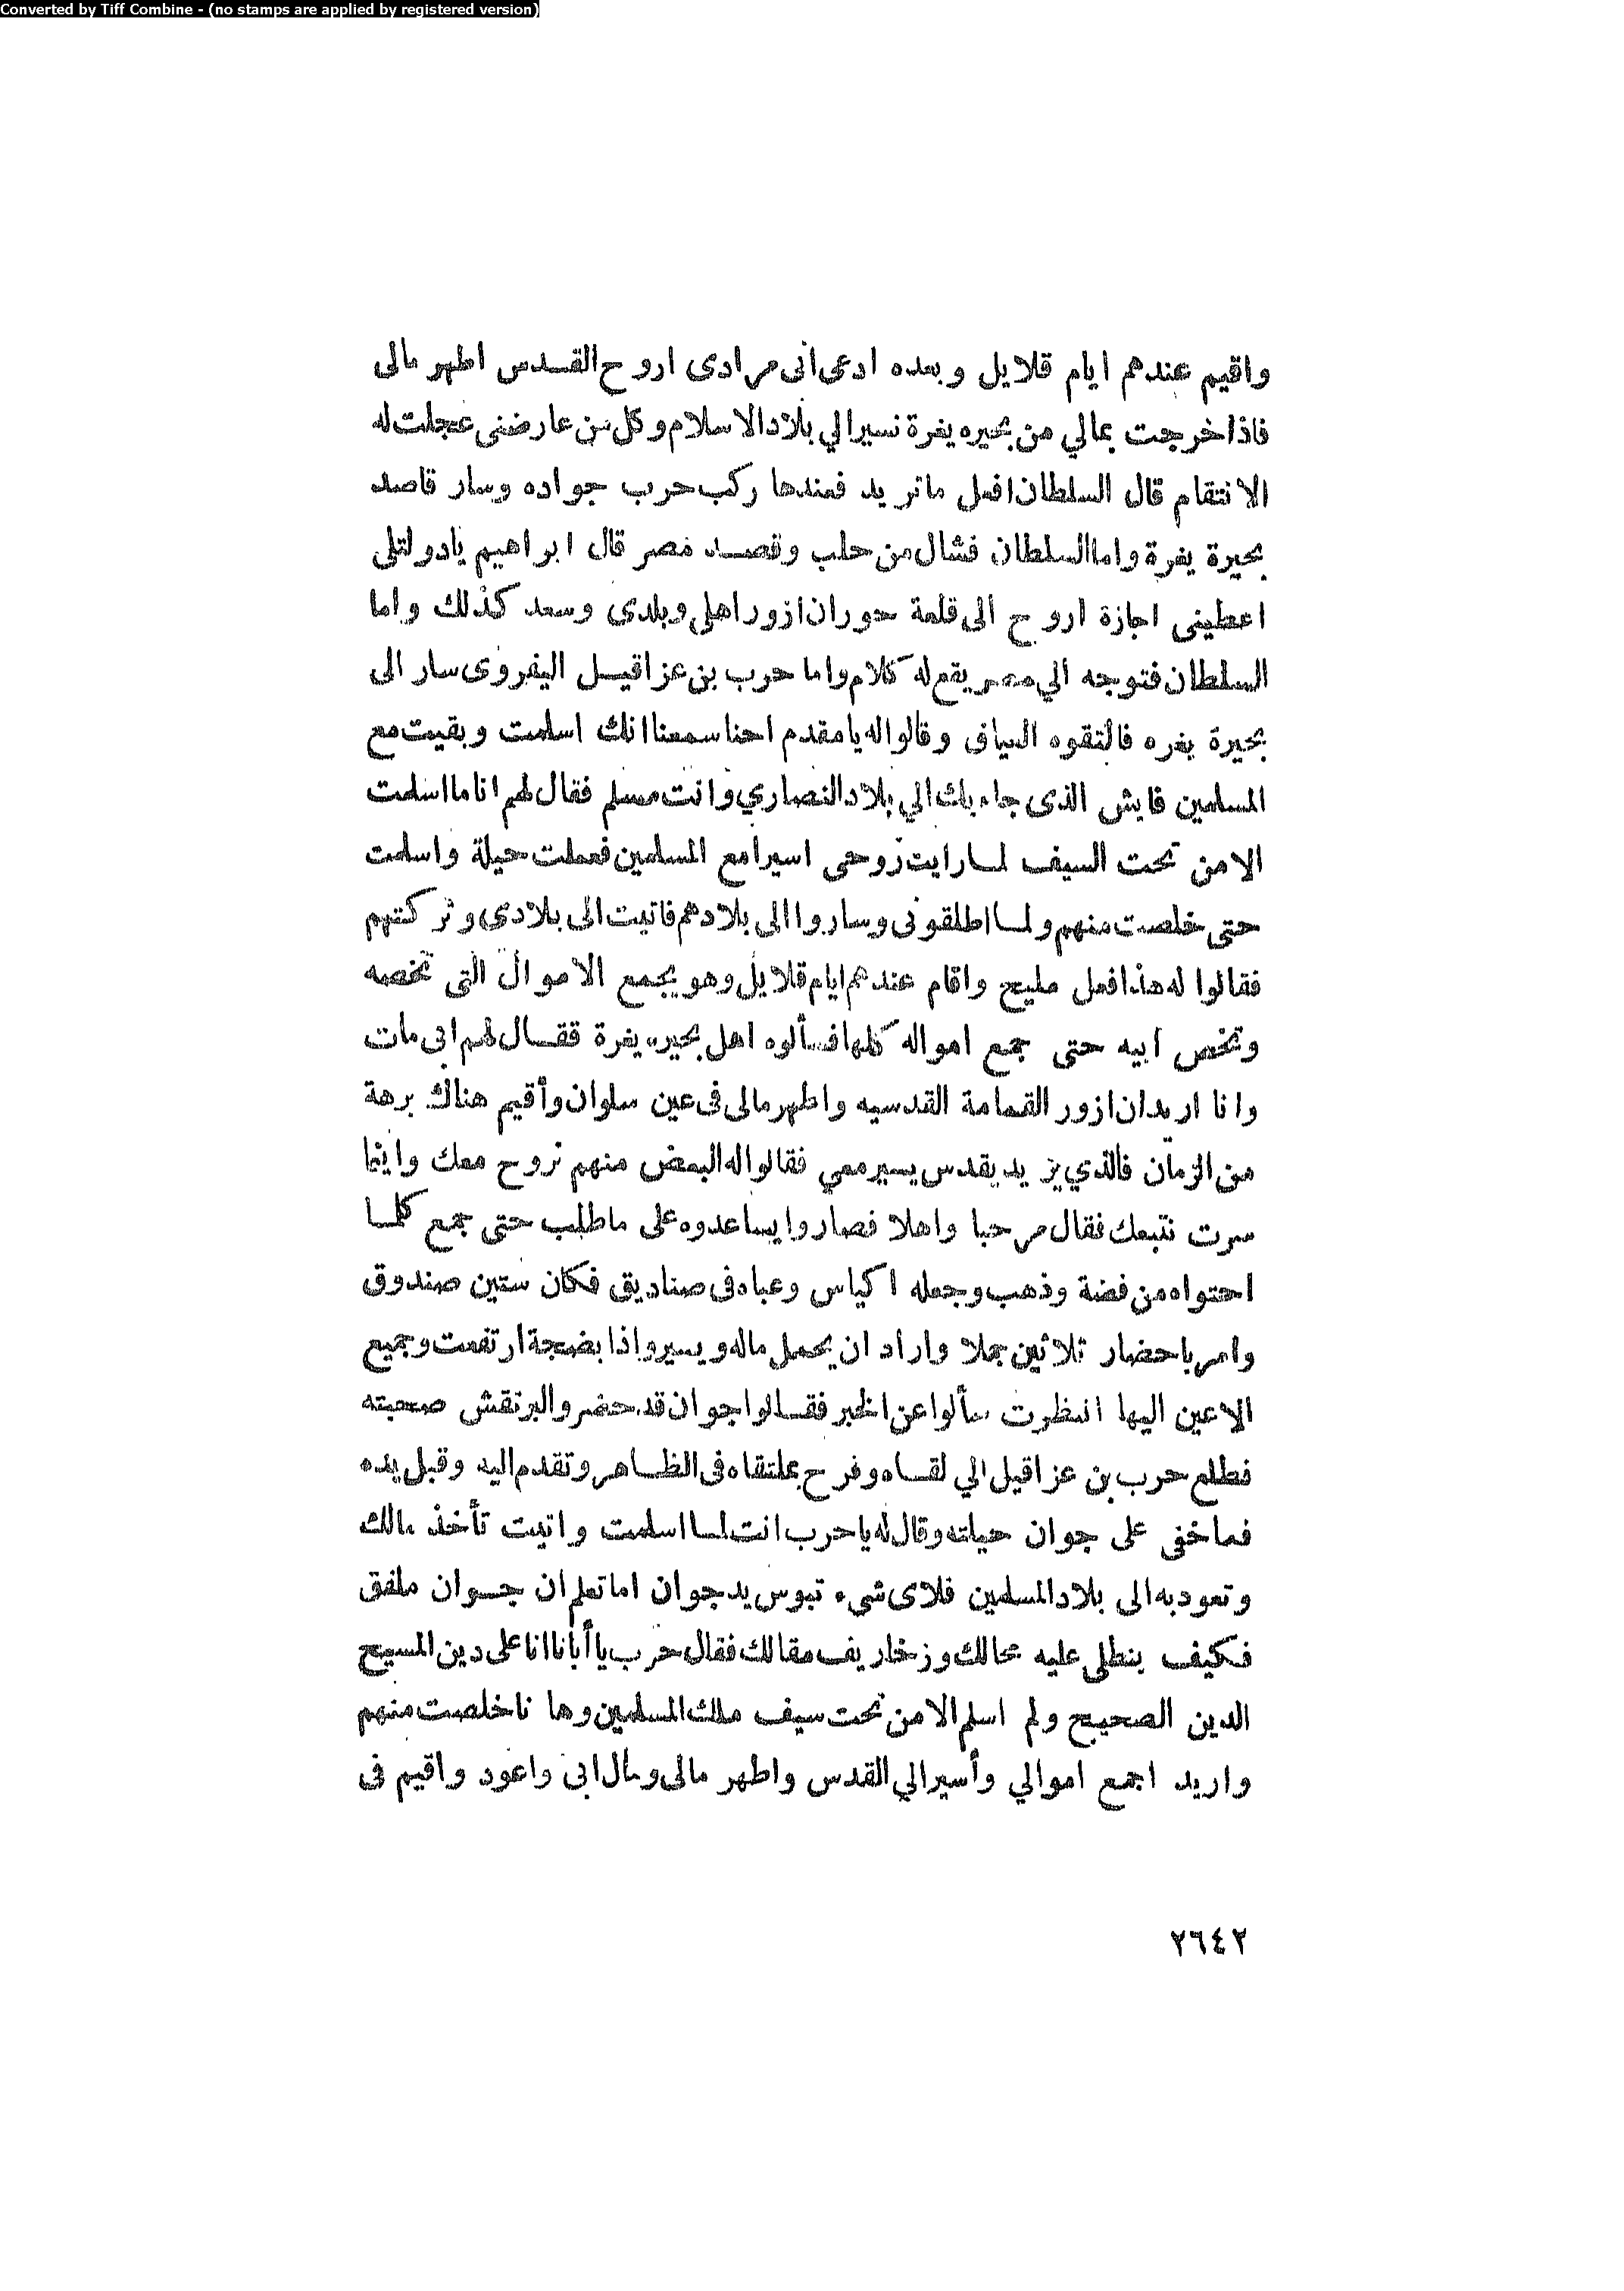 Converted by Tiff Combine - (no stamps are applied by registered version)
واقيم عندهم ايام قلايل وبعده ادعى انى مرادى اروح القدس اطهر مالى
فاذا خرجت بمالي من بحيره يغرة نسير الي بلاد الاسلام وكل من عارضنى عجلت له
الانتقام قال السلطان افعل ما تريد فعندها ركب حرب جواده وسار قاصد
بحيرة يغرة واما السلطان فشال من حلب وقصد مصر قال ابراهيم يادولتلى
اعطينى اجازة اروح الى قلعة حوران ازور اهلى وبلدى وسعد كذلك واما
السلطان فتوجه الي مصر يقع له كلام واما حرب بن عزاقيل اليغروى سار الى
بحيرة يغره فالتقوه السياف وقالوا له يا مقدم احنا سمعنا انك اسلمت وبقيت مع
المسلمين فايش الذى جاء بك الي بلاد النصاري وانت مسلم فقال لهم انا ما اسلمت
الا من تحت السيف لما رايت روحى اسيرا مع المسلمين فعملت حيلة واسلمت
حتى خلصت منهم ولما اطلقونى وساروا الى بلادهم فاتيت الى بلادى وتركتهم
فقالوا له هذا فعل مليح واقام عندهم ايام قلايل وهو يجمع الاموال التى تخصه
وتخص أبيه حتى جمع امواله كلها فسألوه اهل بحيره يغرة فقال لهم ابى مات
وانا اريد ان ازور القمامة القدسيه واطهر مالى فى عين سلوان وأقيم هناك برهة
من الزمان فالذي يزيد يقدس يسير معي فقالوا له البعض منهم نروح معك واينما
سرت نتبعك فقال مرحبا واهلا فصاروا يساعدوه على ما طلب حتى جمع كلما
احتواه من فضة وذهب وجعله اكياس وعباه فى صناديق فكان ستين صندوق
وامر باحضار ثلاثين جملا واراد ان يحمل ماله ويسير واذا بضجة ارتفعت وجميع
الاعين اليها انتظرت سألوا عن الخبر فقالوا جوان قد حضر والبرتقش صحبته
فطلع حرب بن عزاقيل الي لقاه وفرح بملتقاه فى الظاهر وتقدم اليه وقبل يده
فما خفى على جوان حياته وقال له يا حرب انت لما اسلمت واتيت تأخذ مالك
وتعود به الى بلاد المسلمين فلاى شىء تبوس يد جوان اما تعلم ان جوان ملفق
فكيف ينطلى عليه محالك وزخاريف مقالك فقال حرب يا أبانا انا على دين المسيح
الدين الصحيح ولم اسلم الا من تحت سيف ملك المسلمين وها نا خلصت منهم
واريد اجمع اموالي وأسير الي القدس واطهر مالى ومال ابى واعود واقيم فى
٢٦٤٢